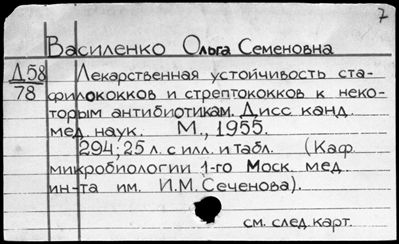 7
Василенко Ольга Семеновна
Д58
78
Лекарственная устойчивость ста-
филококков и стрептококков к неко-
торым антибиотикам. Дисс. канд.
мед. наук. М., 1955.
294; 25 л. с илл. и табл. (Каф.
микробиологии 1-го Моск. мед.
ин-та им. И.М. Сеченова).
см. след. карт.